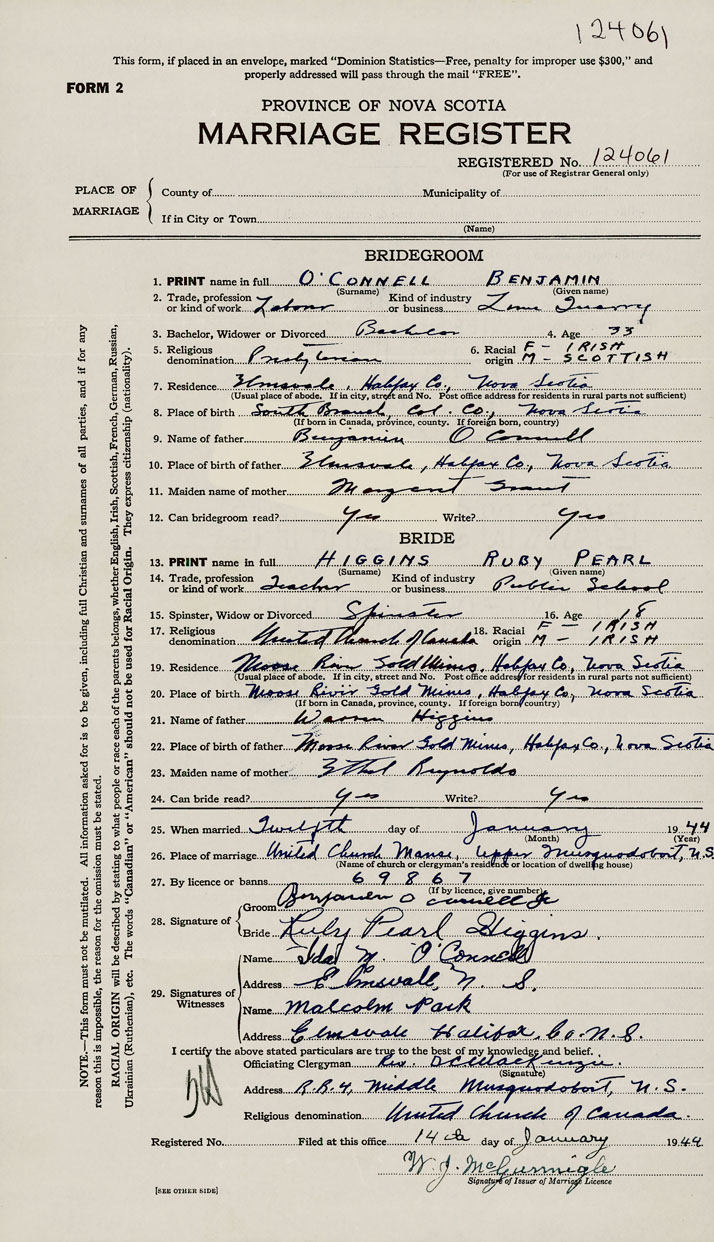 124061
This form, if placed in an envelope, marked "Dominion Statistics—Free, penalty for improper use $300," and
properly addressed will pass through the mail "FREE".
FORM 2
PROVINCE OF NOVA SCOTIA
MARRIAGE REGISTER
REGISTERED No. 124061
(For use of Registrar General only)
PLACE OF MARRIAGE
County of Municipality of
If in City or Town
(Name)
BRIDEGROOM
1. PRINT name in full O'CONNELL BENJAMIN
(Surname) (Given name)
2. Trade, profession or kind of work Labour Kind of industry or business Lime Quarry
3. Bachelor, Widower or Divorced Bachelor 4. Age 33
5. Religious denomination Presbyterian 6. Racial origin F - IRISH
M - SCOTTISH
7. Residence Elmsvale, Halifax Co., Nova Scotia
(Usual place of abode. If in city, street and No. Post office address for residents in rural parts not sufficient)
8. Place of birth South Branch, Col. Co., Nova Scotia
(If born in Canada, province, county. If foreign born, country)
9. Name of father Benjamin O'Connell
10. Place of birth of father Elmsvale, Halifax Co., Nova Scotia
11. Maiden name of mother Margaret Grant
12. Can bridegroom read? Yes Write? Yes
BRIDE
13. PRINT name in full HIGGINS RUBY PEARL
(Surname) (Given name)
14. Trade, profession or kind of work Teacher Kind of industry or business Public School
15. Spinster, Widow or Divorced Spinster 16. Age 18
17. Religious denomination United Church of Canada 18. Racial origin F - IRISH
M - IRISH
19. Residence Moose River Gold Mines, Halifax Co., Nova Scotia
(Usual place of abode. If in city, street and No. Post office address for residents in rural parts not sufficient)
20. Place of birth Moose River Gold Mines, Halifax Co., Nova Scotia
(If born in Canada, province, county. If foreign born, country)
21. Name of father Warren Higgins
22. Place of birth of father Moose River Gold Mines, Halifax Co., Nova Scotia
23. Maiden name of mother Ethel Reynolds
24. Can bride read? Yes Write? Yes
25. When married Twelfth day of January 1944
(Month) (Year)
26. Place of marriage United Church Manse, Upper Musquodoboit, N.S.
(Name of church or clergyman's residence or location of dwelling house)
27. By licence or banns 69867
(If by licence, give number)
28. Signature of
Groom Benjamin O'Connell Jr
Bride Ruby Pearl Higgins.
29. Signatures of Witnesses
Name Ida M. O'Connell
Address Elmsvale, N. S.
Name Malcolm Park
Address Elmsvale Halifax Co. N.S.
I certify the above stated particulars are true to the best of my knowledge and belief.
Officiating Clergyman Rev. MacKenzie.
(Signature)
Address R.R.4, Middle Musquodoboit, N.S.
Religious denomination United Church of Canada.
Registered No. Filed at this office 14th day of January 1944
W. J. McGunnigle
Signature of Issuer of Marriage Licence
[SEE OTHER SIDE]
NOTE.—This form must not be mutilated. All information asked for is to be given, including full Christian and surnames of all parties, and if for any
reason this is impossible, the reason for the omission must be stated.
RACIAL ORIGIN will be described by stating to what people or race each of the parents belongs, whether English, Irish, Scottish, French, German, Russian,
Ukrainian (Ruthenian), etc. The words "Canadian" or "American" should not be used for Racial Origin. They express citizenship (nationality).